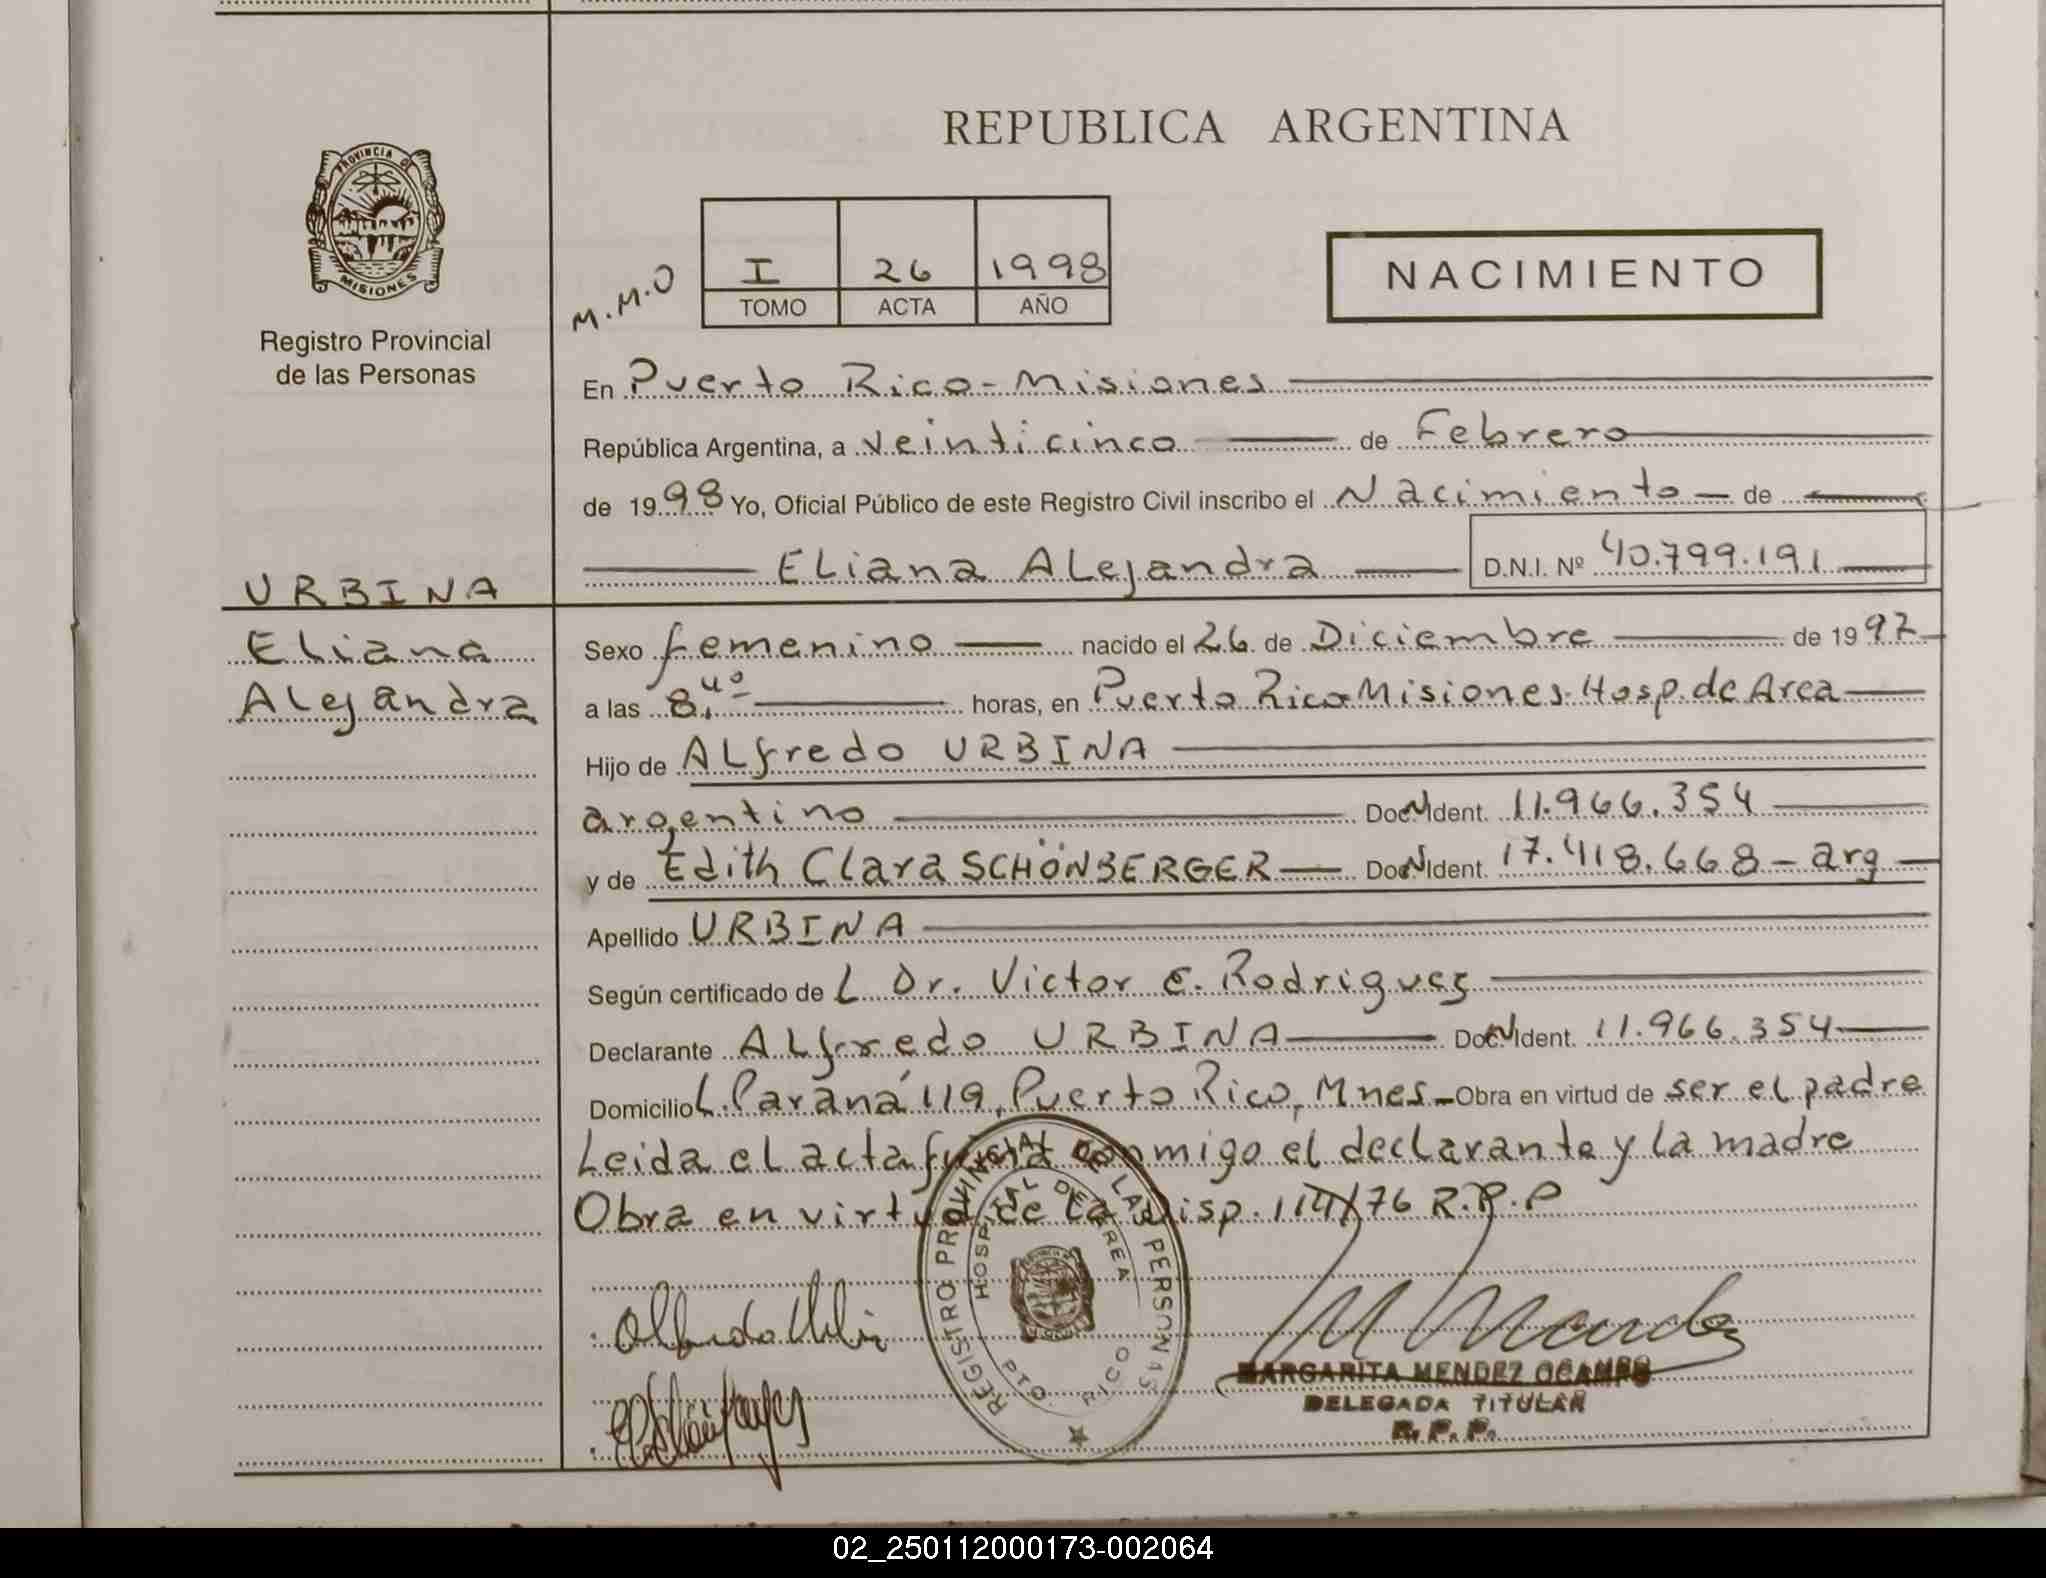 REPUBLICA ARGENTINA
PROVINCIA DE
MISIONES
Registro Provincial
de las Personas
M.M.O
I 26 1998
TOMO ACTA AÑO
NACIMIENTO
En Puerto Rico - Misiones
República Argentina, a veinticinco de Febrero
de 1998 Yo, Oficial Público de este Registro Civil inscribo el Nacimiento de
Eliana Alejandra D.N.I. Nº 40.799.191
URBINA
Eliana
Alejandra
Sexo femenino nacido el 26 de Diciembre de 1997
a las 8,40 horas, en Puerto Rico-Misiones-Hosp. de Area
Hijo de Alfredo URBINA
argentino Doc N Ident. 11.966.354
y de Edith Clara SCHÖNBERGER Doc N Ident. 17.418.668 - arg
Apellido URBINA
Según certificado de L Dr. Victor E. Rodriguez
Declarante Alfredo URBINA Doc N Ident. 11.966.354
Domicilio L. Paraná 119, Puerto Rico, Mnes - Obra en virtud de ser el padre
Leida el acta firma conmigo el declarante y la madre
Obra en virtud de la Disp. 114/76 R.P.P
REGISTRO PROVINCIAL DE LAS PERSONAS
HOSPITAL DE AREA
PTO. RICO
MARGARITA MENDEZ OCAMPO
DELEGADA TITULAR
R. P. P.
02_250112000173-002064